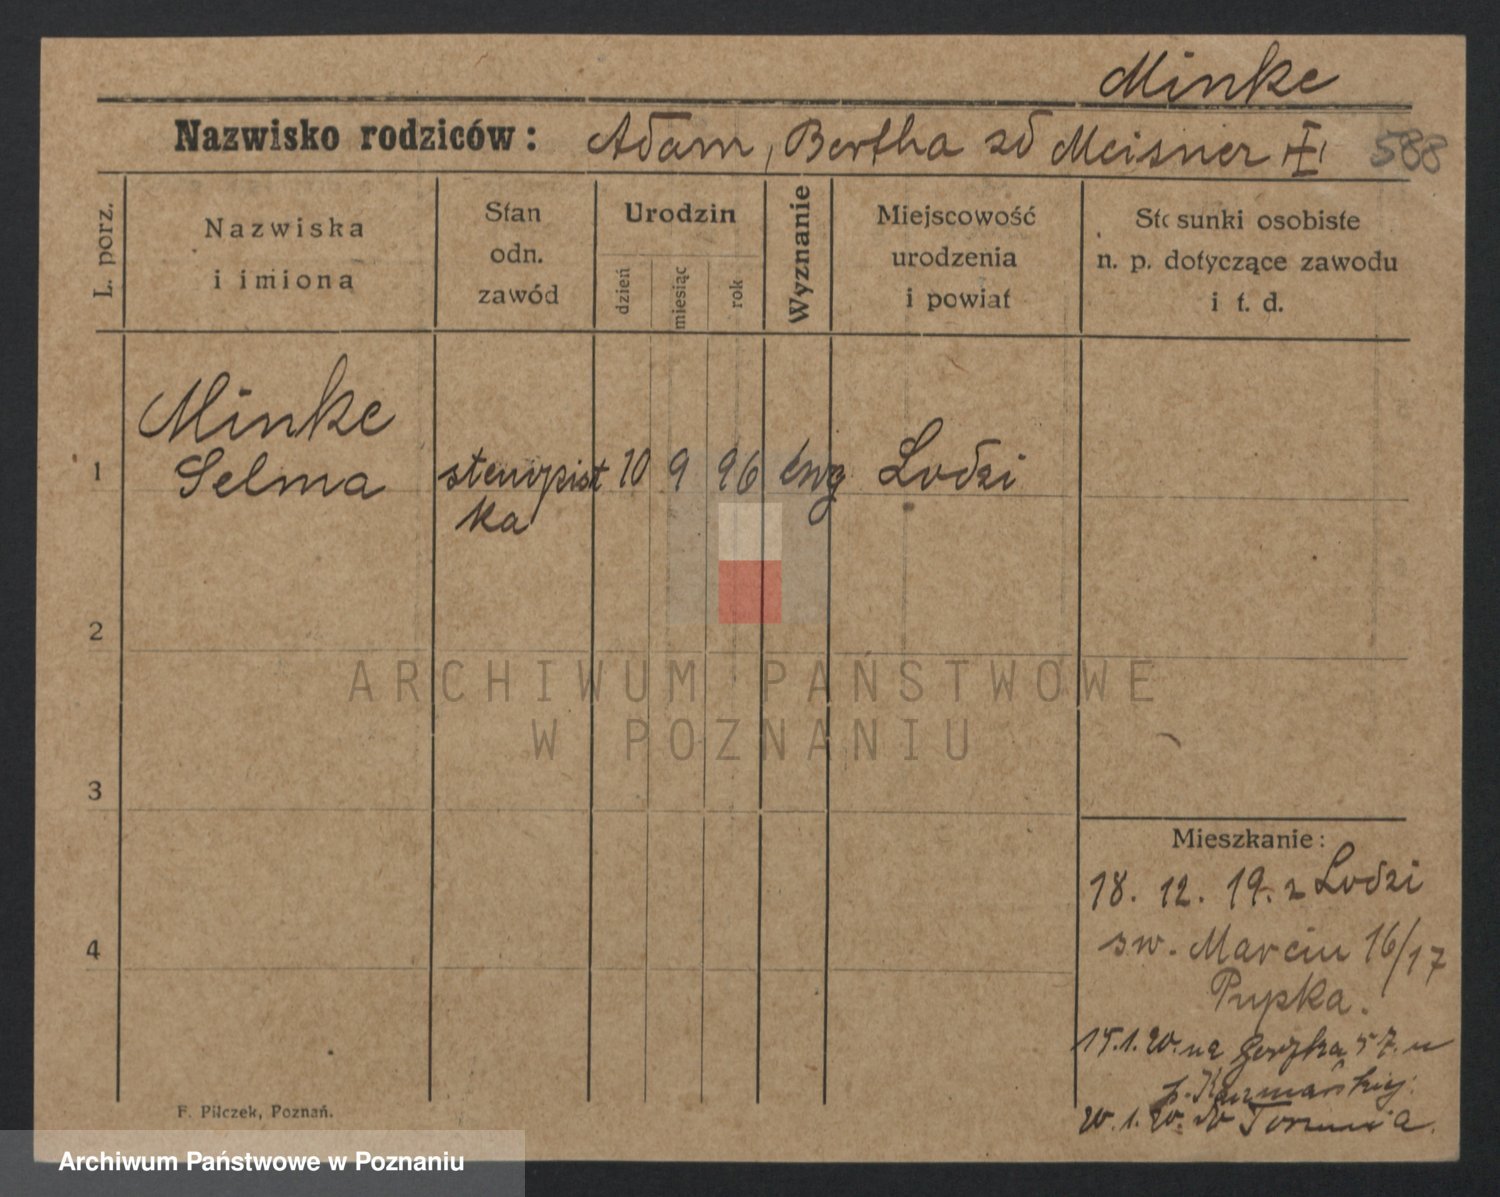 Minke
Nazwisko rodziców: Adam, Bertha zd Meisner
588
L. porz.
Nazwiska
i imiona
Stan
odn.
zawód
Urodzin
dzień
miesiąc
rok
Wyznanie
Miejscowość
urodzenia
i powiat
Stosunki osobiste
n. p. dotyczące zawodu
i t. d.
Minke
1 Selma stenopist 10 9 96 ewg Lodzi
ka
2
ARCHIWUM PAŃSTWOWE
W POZNANIU
3
Mieszkanie:
18. 12. 19. z Lodzi
4 sw. Marcin 16/17
Pupka.
15.1.20. na 57.
20.1.20. do Torunia.
F. Pilczek, Poznań.
Archiwum Państwowe w Poznaniu